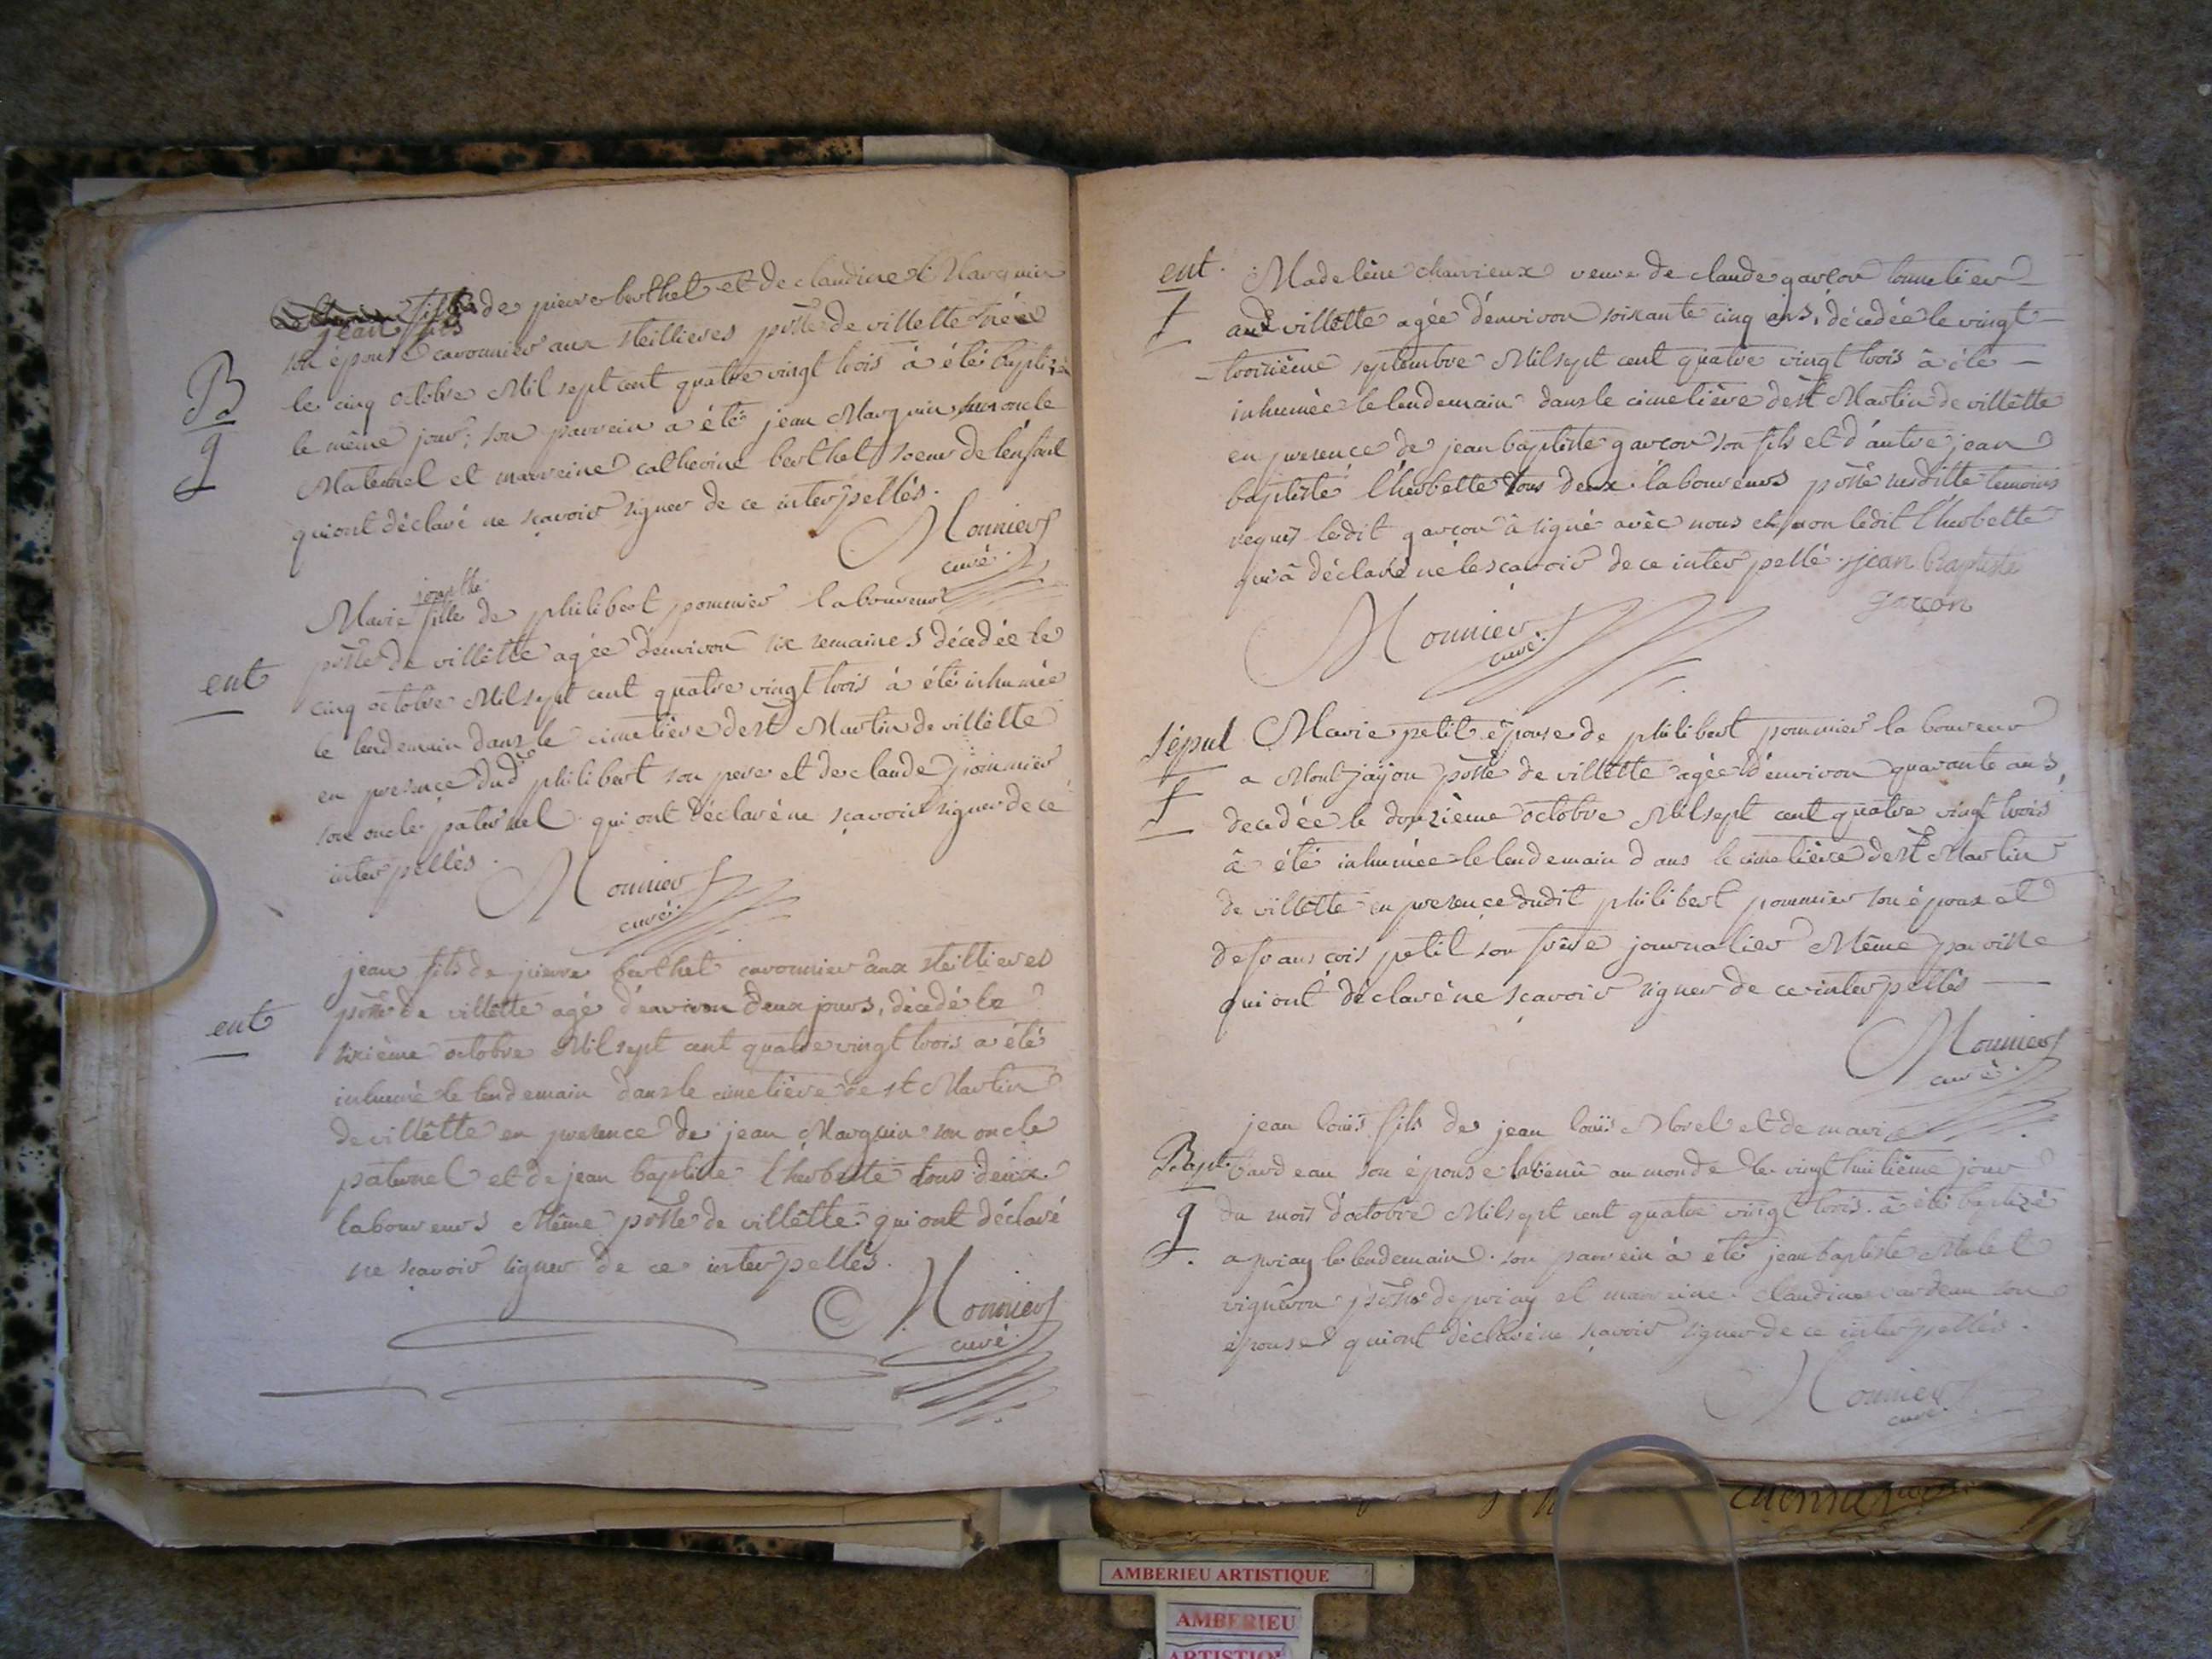 jean fils de pierre berthet et de claudine Marquin
son épouse cavonnier aux Steillieres psse de villette née
B le cinq octobre Mil sept cent quatre vingt trois à été baptizé
g le même jour; son parrein a été jean Marguin son oncle
Maternel et marreine catherine berthet soeur de lenfant
qui ont déclaré ne sçavoir signer de ce interpellés.
Monnier
curé
josephte
Marie fille de philibert pommier laboureur
ent psse de villette agée denviron six semaines décedée le
cinq octobre Mil sept cent quatre vingt trois à été inhumée
le lendemain dans le cimetière de st Martin de villette
en presence dud philibert son pere et de claude pommier
son oncle paternel qui ont déclaré ne sçavoir signer de ce
interpellés.
Monnier
curé.
jean fils de pierre berthet cavonnier aux Steillieres
ent psse de villette agé d'environ deux jours, décedé le
sixième octobre Mil sept cent quatre vingt trois a été
inhumé le lendemain dans le cimetière de st Martin
de villette en presence de jean Marguin son oncle
paternel et de jean baptiste l'herbette tous deux
laboureurs Même psse de villette qui ont déclaré
ne sçavoir signer de ce interpellés.
Monnier
curé.
ent. Madeleine charvieux veuve de claude garçon tonnelier
† aud villette agée d'environ soixante cinq ans, décedée le vingt
troisième septembre Mil sept cent quatre vingt trois à été
inhumée le lendemain dans le cimetière de st Martin de villette
en presence de jean baptiste garçon son fils et d'autre jean
baptiste l'herbette tous deux laboureurs psse susditte temoins
requis ledit garçon à signé avec nous et non ledit l'herbette
qui à déclaré ne le sçavoir de ce interpellé. jean Baptiste
garcon
Monnier
curé
sépul Marie petit épouse de philibert pommier laboureur
† a Mont jayon psse de villette agée d'environ quarante ans,
decedée le douzième octobre Mil sept cent quatre vingt trois
à été inhumée le lendemain dans le cimetière de st Martin
de villette en presence dudit philibert pommier son époux et
de francois petit son frère journalier Même paroisse
qui ont déclaré ne sçavoir signer de ce interpellés
Monnier
curé.
jean louis fils de jean louis Morel et de marie
Bapt. tardeau son épouse venû au monde le vingt huitième jour
g du mois d'octobre Mil sept cent quatre vingt trois. à été baptizé
a priay le lendemain. son parrein à été jean baptiste
vigneron psse de priay et marreine claudine tardeau son
épouse qui ont déclaré ne sçavoir signer de ce interpellés.
Monnier
curé.
AMBERIEU ARTISTIQUE
AMBERIEU
ARTISTIQUE